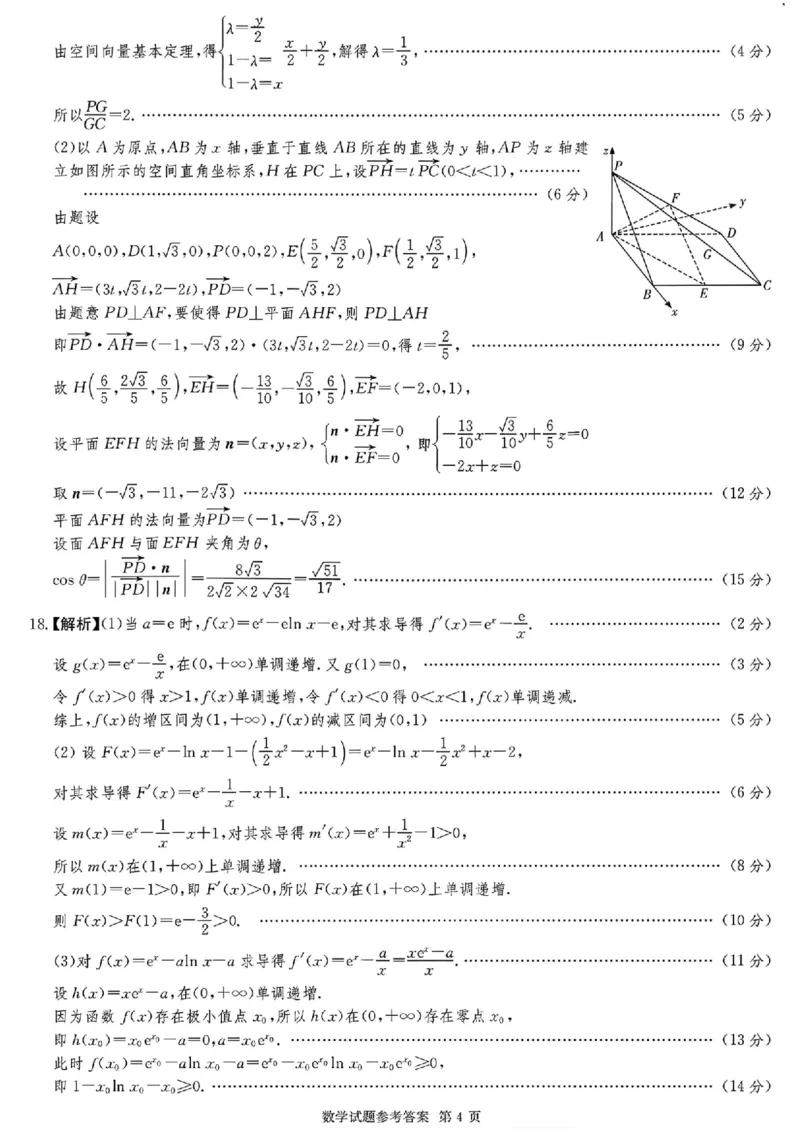 由空间向量基本定理,得{λ=y/2
1-λ= x/2+y/2 ,解得λ=1/3, (4分)
1-λ=x
所以PG/GC=2. (5分)
(2)以 A 为原点,AB 为 x 轴,垂直于直线 AB 所在的直线为 y 轴,AP 为 z 轴建
立如图所示的空间直角坐标系,H 在 PC 上,设PH→=tPC→(0<t<1),
(6分)
由题设
A(0,0,0),D(1,√3,0),P(0,0,2),E(5/2,√3/2,0),F(1/2,√3/2,1),
AH→=(3t,√3t,2-2t),PD→=(-1,-√3,2)
由题意 PD⊥AF,要使得 PD⊥平面 AHF,则 PD⊥AH
即PD→·AH→=(-1,-√3,2)·(3t,√3t,2-2t)=0,得 t=2/5, (9分)
故 H(6/5,2√3/5,6/5),EH→=(-13/10,-√3/10,6/5),EF→=(-2,0,1),
设平面 EFH 的法向量为 n=(x,y,z),{n·EH→=0 n·EF→=0 ,即{-13/10x-√3/10y+6/5z=0 -2x+z=0
取 n=(-√3,-11,-2√3) (12分)
平面 AFH 的法向量为PD→=(-1,-√3,2)
设面 AFH 与面 EFH 夹角为 θ,
cos θ=|PD→·n/|PD→||n||=8√3/2√2×2√34=√51/17. (15分)
z
P
F
y
A
D
G
B
E
C
x
18.【解析】(1)当 a=e 时,f(x)=eˣ-eln x-e,对其求导得 f′(x)=eˣ-e/x. (2分)
设 g(x)=eˣ-e/x,在(0,+∞)单调递增.又 g(1)=0, (3分)
令 f′(x)>0 得 x>1,f(x)单调递增,令 f′(x)<0 得 0<x<1,f(x)单调递减.
综上,f(x)的增区间为(1,+∞),f(x)的减区间为(0,1) (5分)
(2) 设 F(x)=eˣ-ln x-1-(1/2x²-x+1)=eˣ-ln x-1/2x²+x-2,
对其求导得 F′(x)=eˣ-1/x-x+1. (6分)
设 m(x)=eˣ-1/x-x+1,对其求导得 m′(x)=eˣ+1/x²-1>0,
所以 m(x)在(1,+∞)上单调递增. (8分)
又 m(1)=e-1>0,即 F′(x)>0,所以 F(x)在(1,+∞)上单调递增.
则 F(x)>F(1)=e-3/2>0. (10分)
(3)对 f(x)=eˣ-aln x-a 求导得 f′(x)=eˣ-a/x=xeˣ-a/x. (11分)
设 h(x)=xeˣ-a,在(0,+∞)单调递增.
因为函数 f(x)存在极小值点 x₀,所以 h(x)在(0,+∞)存在零点 x₀,
即 h(x₀)=x₀e^x₀-a=0,a=x₀e^x₀. (13分)
此时 f(x₀)=e^x₀-aln x₀-a=e^x₀-x₀e^x₀ln x₀-x₀e^x₀≥0,
即 1-x₀ln x₀-x₀≥0. (14分)
数学试题参考答案 第 4 页